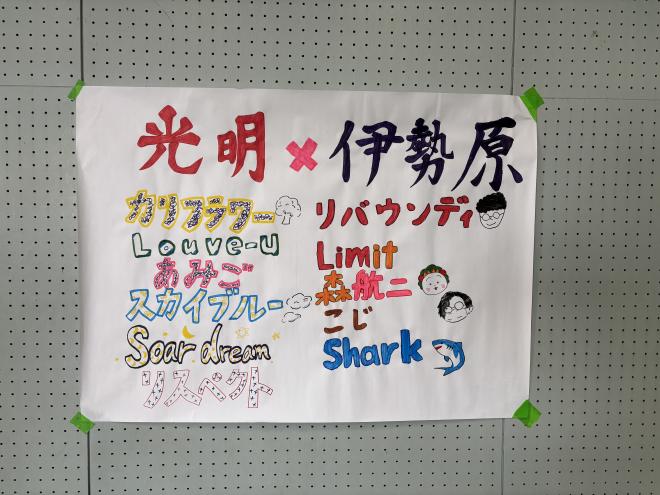 光明 × 伊勢原
カリフラワー
Louve-u
あみご
スカイブルー
Soar dream
リスペクト
リバウンディ
Limit
森航二
こじ
Shark